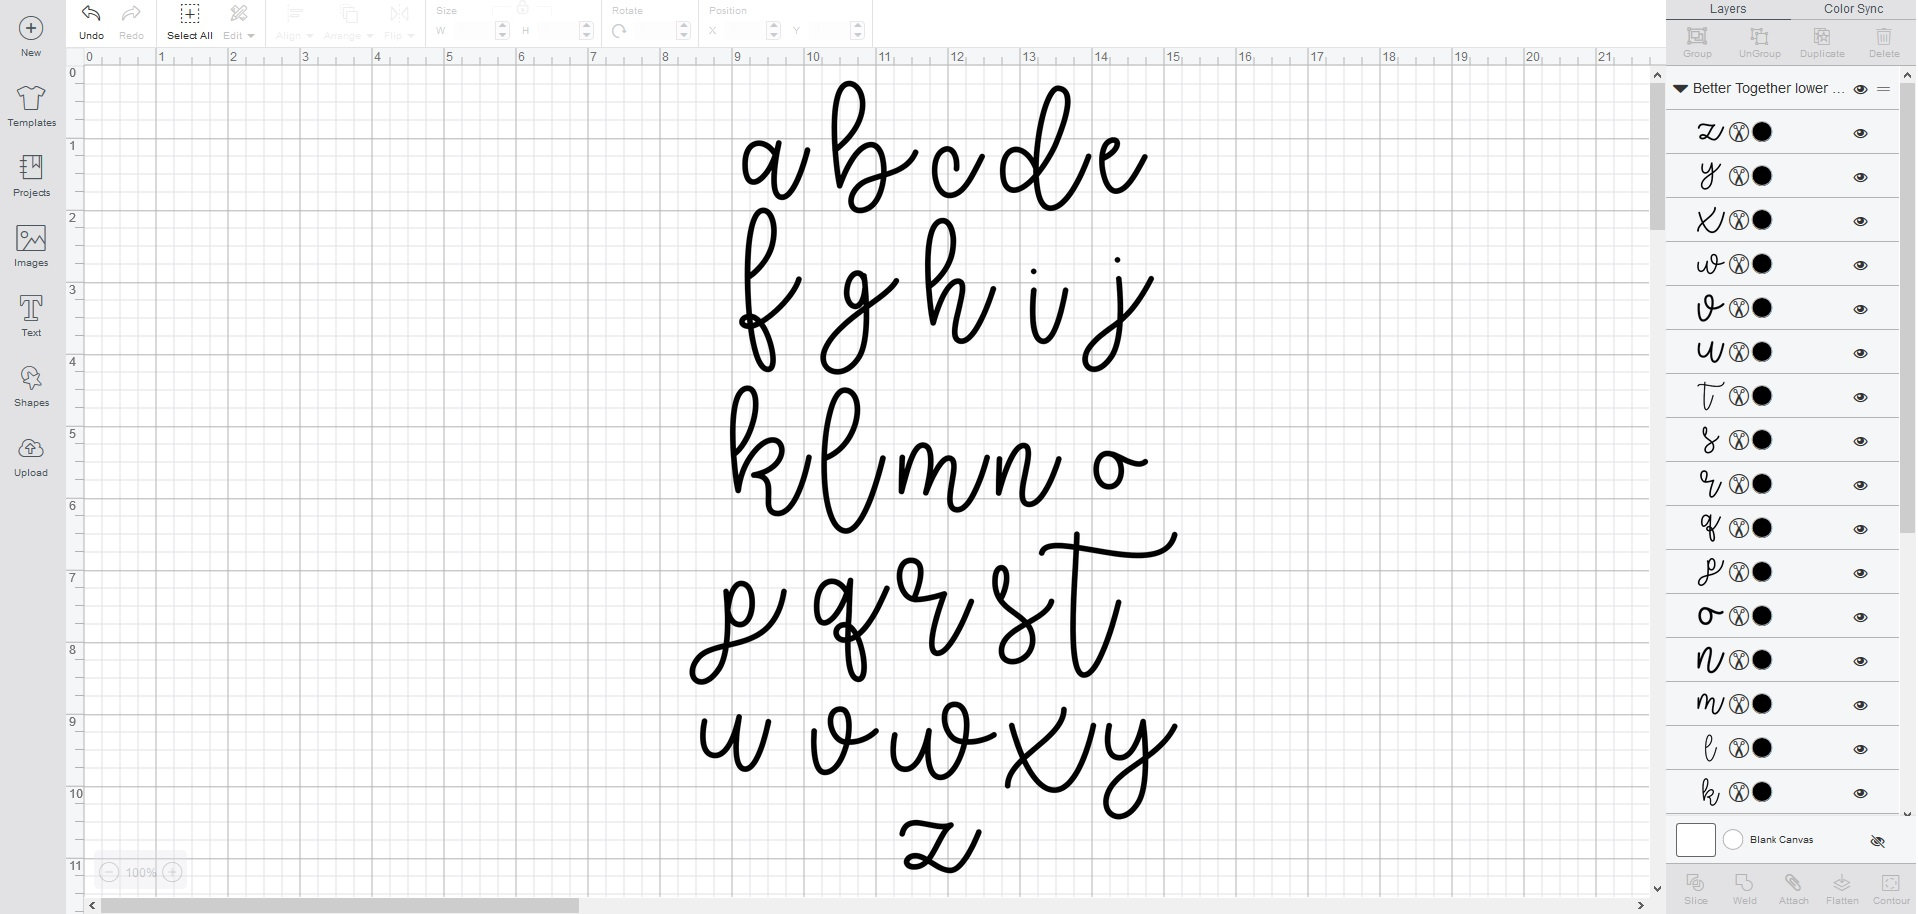 Undo Redo Select All Edit Align Arrange Flip Size W H Rotate Position X Y
Layers Color Sync
Group UnGroup Duplicate Delete
New
Templates
Projects
Images
Text
Shapes
Upload
0 1 2 3 4 5 6 7 8 9 10 11 12 13 14 15 16 17 18 19 20 21
0
1
2
3
4
5
6
7
8
9
10
11
a b c d e
f g h i j
k l m n o
p q r s t
u v w x y
z
100%
Better Together lower ...
z
y
x
w
v
u
t
s
r
q
p
o
n
m
l
k
Blank Canvas
Slice Weld Attach Flatten Contour